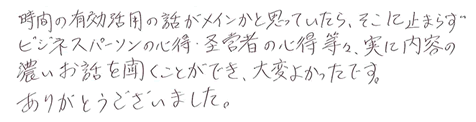 時間の有効活用の話がメインかと思っていたら、そこに止まらず
ビジネスパーソンの心得・経営者の心得等々、実に内容の
濃いお話を聞くことができ、大変よかったです。
ありがとうございました。